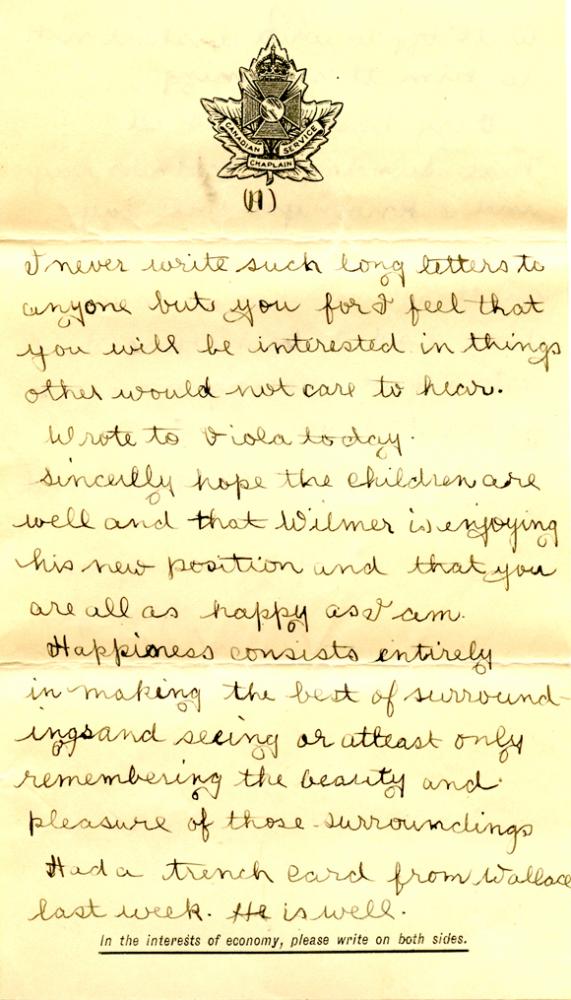 CANADIAN CHAPLAIN SERVICE
(11)
I never write such long letters to
anyone but you for I feel that
you will be interested in things
other would not care to hear.
Wrote to Viola today.
Sincerlly hope the children are
well and that Wilmer is enjoying
his new position and that you
are all as happy as I am.
Happieness consists entirely
in making the best of surround-
ings and seeing or atleast only
remembering the beauty and
pleasure of those surroundings
Had a trench card from Wallace
last week. He is well.
In the interests of economy, please write on both sides.